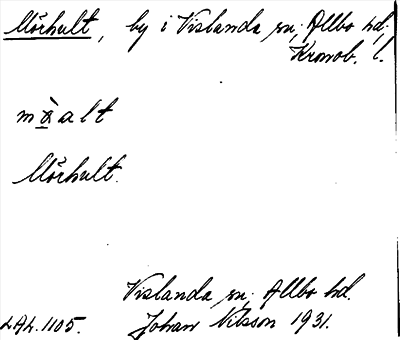 Mörhult, by i Vislanda sn, Allbo hd,
Kronob. l.
Mörhult.
Vislanda sn, Allbo hd.
LAL. 1105. Johan Nilsson 1931.